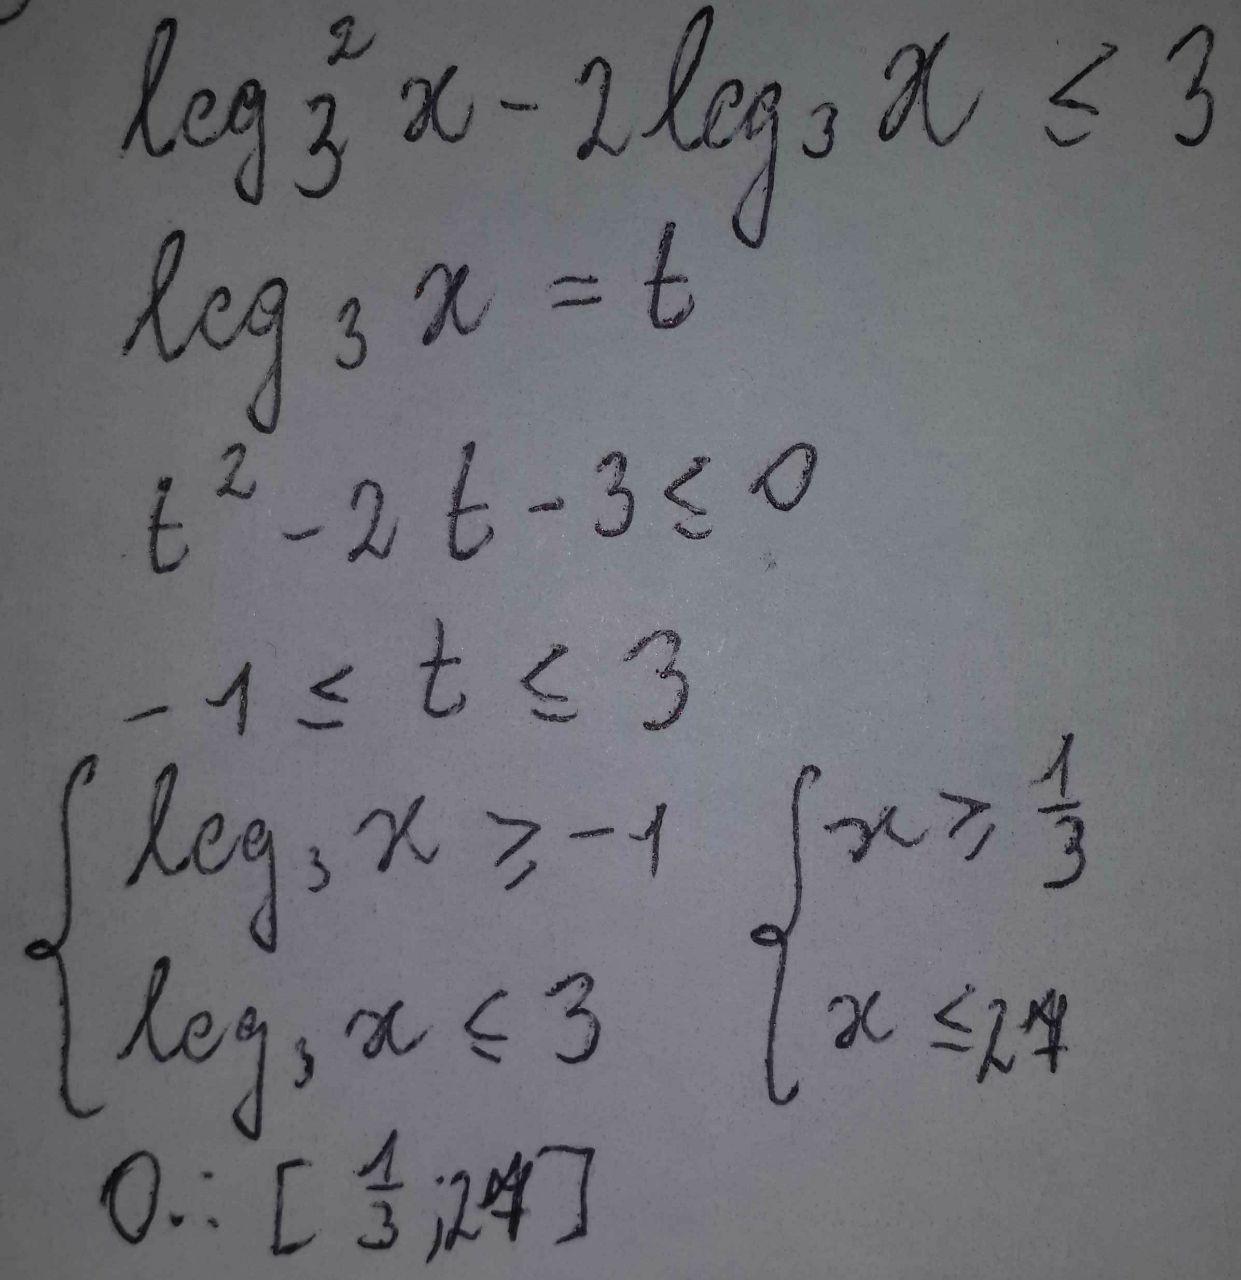 log₃² x - 2 log₃ x ≤ 3
log₃ x = t
t² - 2t - 3 ≤ 0
-1 ≤ t ≤ 3
{ log₃ x ≥ -1 { x ≥ 1/3
log₃ x ≤ 3 x ≤ 27
О.: [1/3; 27]